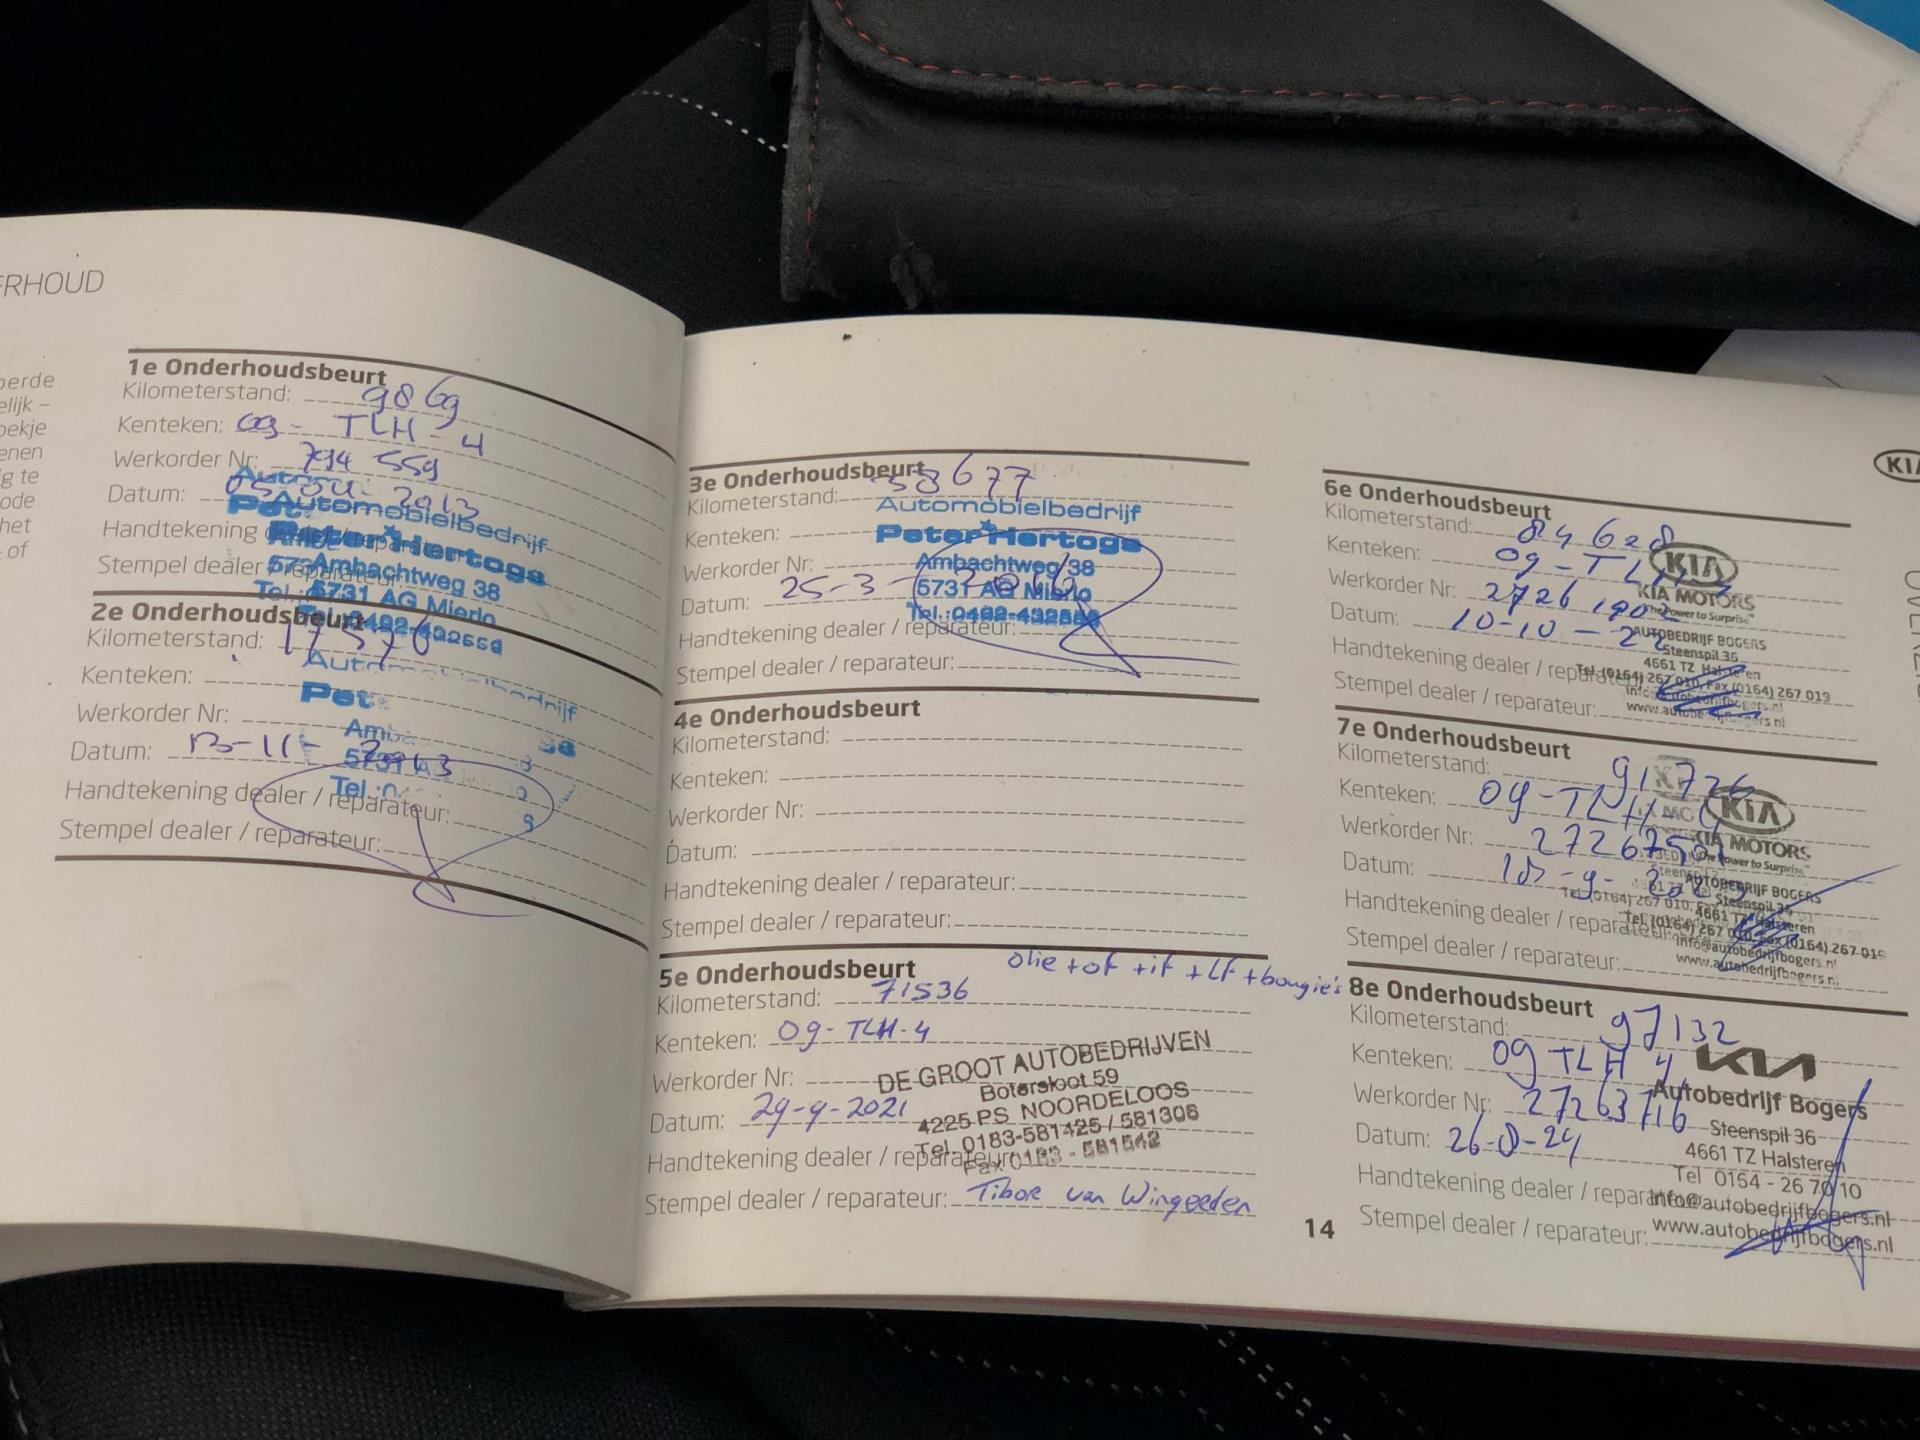 ERHOUD
perde
elijk –
oekje
enen
g te
ode
het
of
1e Onderhoudsbeurt
Kilometerstand: 9869
Kenteken: 09 - TLH - 4
Werkorder Nr: 794 559
Datum: 2013
Handtekening dealer / reparateur:
Stempel dealer / reparateur:
Automobielbedrijf
Peter Hertogs
Ambachtweg 38
5731 AG Mierlo
Tel.:0492-432559
2e Onderhoudsbeurt
Kilometerstand: 17576
Kenteken:
Werkorder Nr:
Datum: 13-11-2013
Handtekening dealer / reparateur:
Stempel dealer / reparateur:
3e Onderhoudsbeurt
Kilometerstand: 38677
Automobielbedrijf
Kenteken:
Peter Hertogs
Werkorder Nr:
Ambachtweg 38
Datum: 25-3-
5731 AG Mierlo
Tel.:0492-432559
Handtekening dealer / reparateur:
Stempel dealer / reparateur:
4e Onderhoudsbeurt
Kilometerstand:
Kenteken:
Werkorder Nr:
Datum:
Handtekening dealer / reparateur:
Stempel dealer / reparateur:
5e Onderhoudsbeurt
olie + of + if + Lf + bougie's
Kilometerstand: 71536
Kenteken: 09-TLH-4
Werkorder Nr:
DE GROOT AUTOBEDRIJVEN
Botersloot 59
Datum: 29-9-2021
4225 PS NOORDELOOS
Tel. 0183-581425 / 581306
Handtekening dealer / reparateur:
Fax 0183 - 581542
Stempel dealer / reparateur: Tibor van Wingerden
14
KIA
6e Onderhoudsbeurt
Kilometerstand: 84628
Kenteken: 09-TLH
KIA
Werkorder Nr: 2726 1902
KIA MOTORS
The Power to Surprise
Datum: 10-10-22
AUTOBEDRIJF BOGERS
Steenspil 36
4661 TZ Halsteren
Handtekening dealer / reparateur:
Tel. (0164) 267 010, Fax (0164) 267 019
info@autobedrijfbogers.nl
Stempel dealer / reparateur:
www.autobedrijfbogers.nl
7e Onderhoudsbeurt
Kilometerstand: 91726
Kenteken: 09-TLH 4
KIA
Werkorder Nr:
KIA MOTORS
The Power to Surprise
Datum:
AUTOBEDRIJF BOGERS
Steenspil 36
4661 TZ Halsteren
Handtekening dealer / reparateur:
Tel. (0164) 267 010, Fax (0164) 267 019
info@autobedrijfbogers.nl
Stempel dealer / reparateur:
www.autobedrijfbogers.nl
8e Onderhoudsbeurt
Kilometerstand: 97132
Kenteken: 09 TLH 4
KIA
Werkorder Nr: 27263716
Autobedrijf Bogers
Steenspil 36
Datum: 26-8-24
4661 TZ Halsteren
Tel 0164 - 26 70 10
Handtekening dealer / reparateur:
info@autobedrijfbogers.nl
Stempel dealer / reparateur:
www.autobedrijfbogers.nl